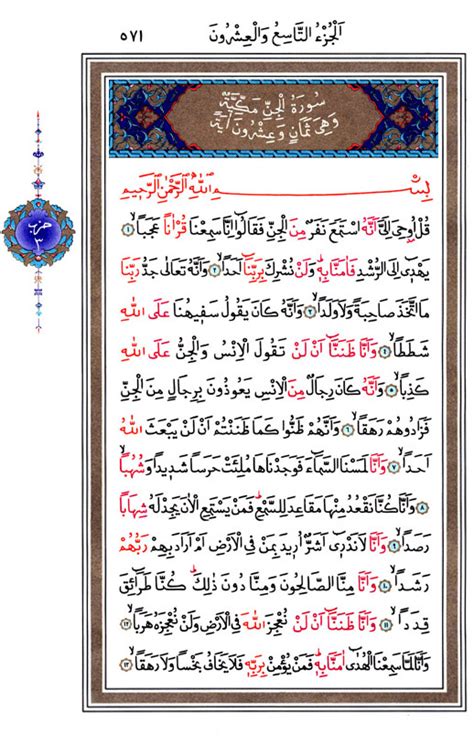 اَلْجُزْءُ التَّاسِعُ وَالْعِشْرُونَ
٥٧١
سُورَةُ الْجِنِّ مَكِّيَّةٌ
وَهِيَ ثَمَانٍ وَعِشْرُونَ اٰيَةً
حزب
٣
بِسْمِ اللّٰهِ الرَّحْمٰنِ الرَّحِيمِ
قُلْ اُوحِيَ اِلَيَّ اَنَّهُ اسْتَمَعَ نَفَرٌ مِنَ الْجِنِّ فَقَالُوا اِنَّا سَمِعْنَا قُرْاٰنًا عَجَبًاۙ ﴿١﴾
يَهْدِي اِلَى الرُّشْدِ فَاٰمَنَّا بِهٖۜ وَلَنْ نُشْرِكَ بِرَبِّنَا اَحَدًاۙ ﴿٢﴾ وَاَنَّهُ تَعَالٰى جَدُّ رَبِّنَا
مَا اتَّخَذَ صَاحِبَةً وَلَا وَلَدًاۙ ﴿٣﴾ وَاَنَّهُ كَانَ يَقُولُ سَفِيهُنَا عَلَى اللّٰهِ
شَطَطًاۙ ﴿٤﴾ وَاَنَّا ظَنَنَّا اَنْ لَنْ تَقُولَ الْاِنْسُ وَالْجِنُّ عَلَى اللّٰهِ
كَذِبًاۙ ﴿٥﴾ وَاَنَّهُ كَانَ رِجَالٌ مِنَ الْاِنْسِ يَعُوذُونَ بِرِجَالٍ مِنَ الْجِنِّ
فَزَادُوهُمْ رَهَقًاۙ ﴿٦﴾ وَاَنَّهُمْ ظَنُّوا كَمَا ظَنَنْتُمْ اَنْ لَنْ يَبْعَثَ اللّٰهُ
اَحَدًاۙ ﴿٧﴾ وَاَنَّا لَمَسْنَا السَّمَاءَ فَوَجَدْنَاهَا مُلِئَتْ حَرَسًا شَدِيدًا وَشُهُبًاۙ
﴿٨﴾ وَاَنَّا كُنَّا نَقْعُدُ مِنْهَا مَقَاعِدَ لِلسَّمْعِۜ فَمَنْ يَسْتَمِعِ الْاٰنَ يَجِدْ لَهُ شِهَابًا
رَصَدًاۙ ﴿٩﴾ وَاَنَّا لَا نَدْرِي اَشَرٌّ اُرِيدَ بِمَنْ فِي الْاَرْضِ اَمْ اَرَادَ بِهِمْ رَبُّهُمْ
رَشَدًاۙ ﴿١٠﴾ وَاَنَّا مِنَّا الصَّالِحُونَ وَمِنَّا دُونَ ذٰلِكَۜ كُنَّا طَرَائِقَ
قِدَدًاۙ ﴿١١﴾ وَاَنَّا ظَنَنَّا اَنْ لَنْ نُعْجِزَ اللّٰهَ فِي الْاَرْضِ وَلَنْ نُعْجِزَهُ هَرَبًاۙ ﴿١٢﴾
وَاَنَّا لَمَّا سَمِعْنَا الْهُدٰى اٰمَنَّا بِهٖۜ فَمَنْ يُؤْمِنْ بِرَبِّهٖ فَلَا يَخَافُ بَخْسًا وَلَا رَهَقًاۙ ﴿١٣﴾